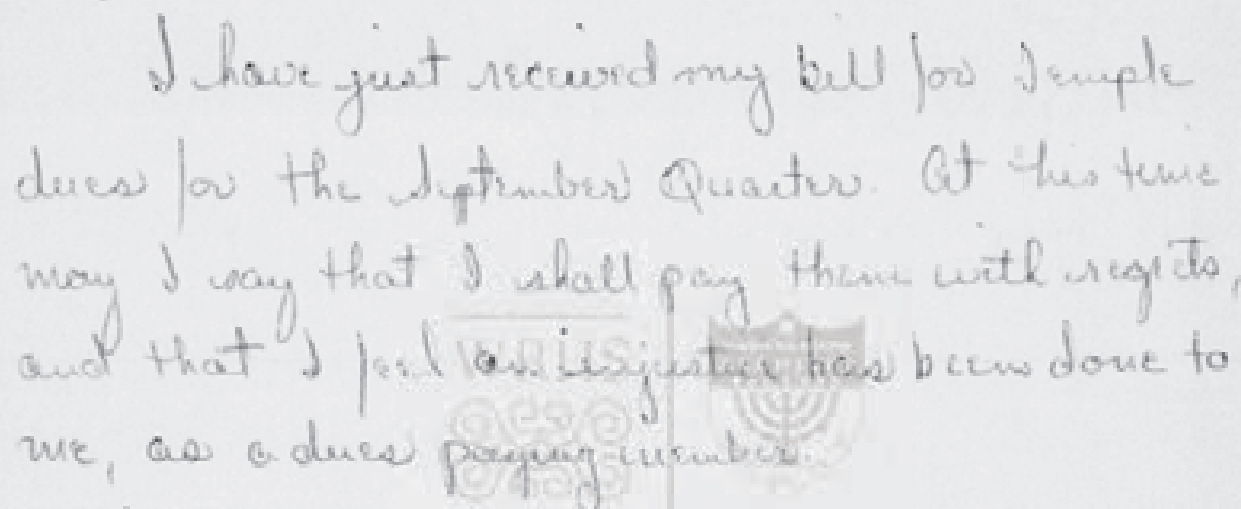 I have just received my bill for Temple
dues for the September Quarter. At this time
may I say that I shall pay them with regrets,
and that I feel an injustice has been done to
me, as a dues paying member.